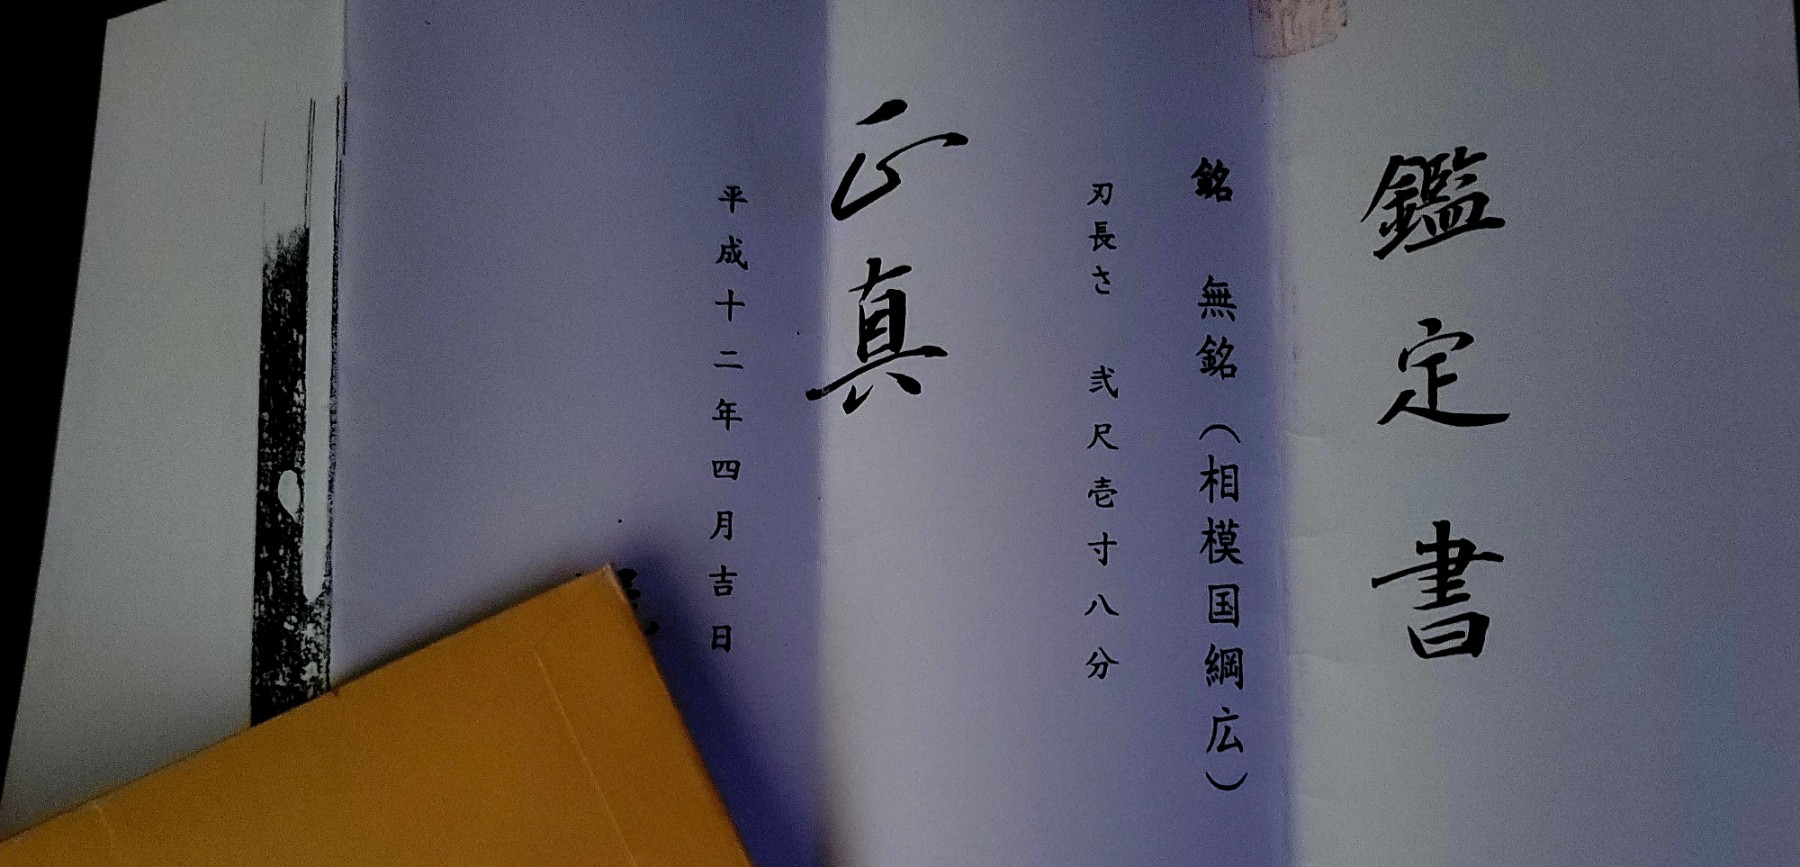 鑑定書
銘 無銘(相模国綱広)
刃長さ 弐尺壱寸八分
正真
平成十二年四月吉日